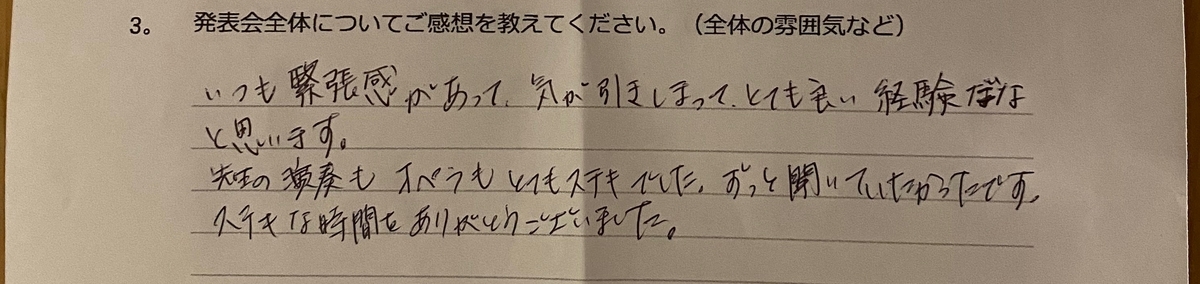 3。 発表会全体についてご感想を教えてください。（全体の雰囲気など）
いつも緊張感があって、気が引きしまって、とても良い経験だな
と思います。
先生の演奏もオペラもとてもステキでした。ずっと聞いていたかったです。
ステキな時間をありがとうございました。